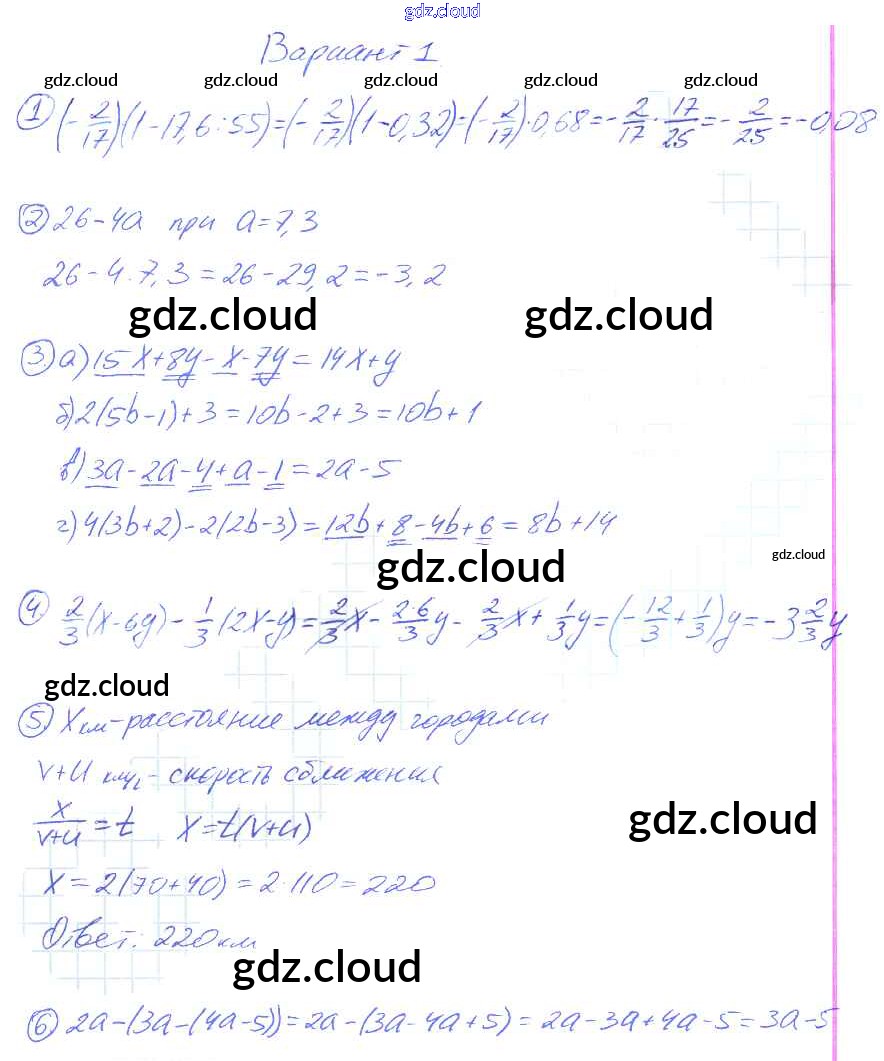 gdz.cloud
Вариант 1
gdz.cloud gdz.cloud gdz.cloud gdz.cloud gdz.cloud
① (-2/17)(1-17,6:55)=(-2/17)(1-0,32)=(-2/17)·0,68=-2/17·17/25=-2/25=-0,08
② 26-4a при a=7,3
26-4·7,3=26-29,2=-3,2
gdz.cloud gdz.cloud
③ а) 15x+8y-x-7y=14x+y
б) 2(5b-1)+3=10b-2+3=10b+1
в) 3a-2a-4+a-1=2a-5
г) 4(3b+2)-2(2b-3)=12b+8-4b+6=8b+14
gdz.cloud gdz.cloud
④ 2/3(x-6y)-1/3(2x-y)=2/3x-2·6/3y-2/3x+1/3y=(-12/3+1/3)y=-3 2/3y
gdz.cloud
⑤ x км-расстояние между городами
v+u км/ч-скорость сближения
x/(v+u)=t x=t(v+u)
gdz.cloud
x=2(70+40)=2·110=220
Ответ: 220 км
gdz.cloud
⑥ 2a-(3a-(4a-5))=2a-(3a-4a+5)=2a-3a+4a-5=3a-5